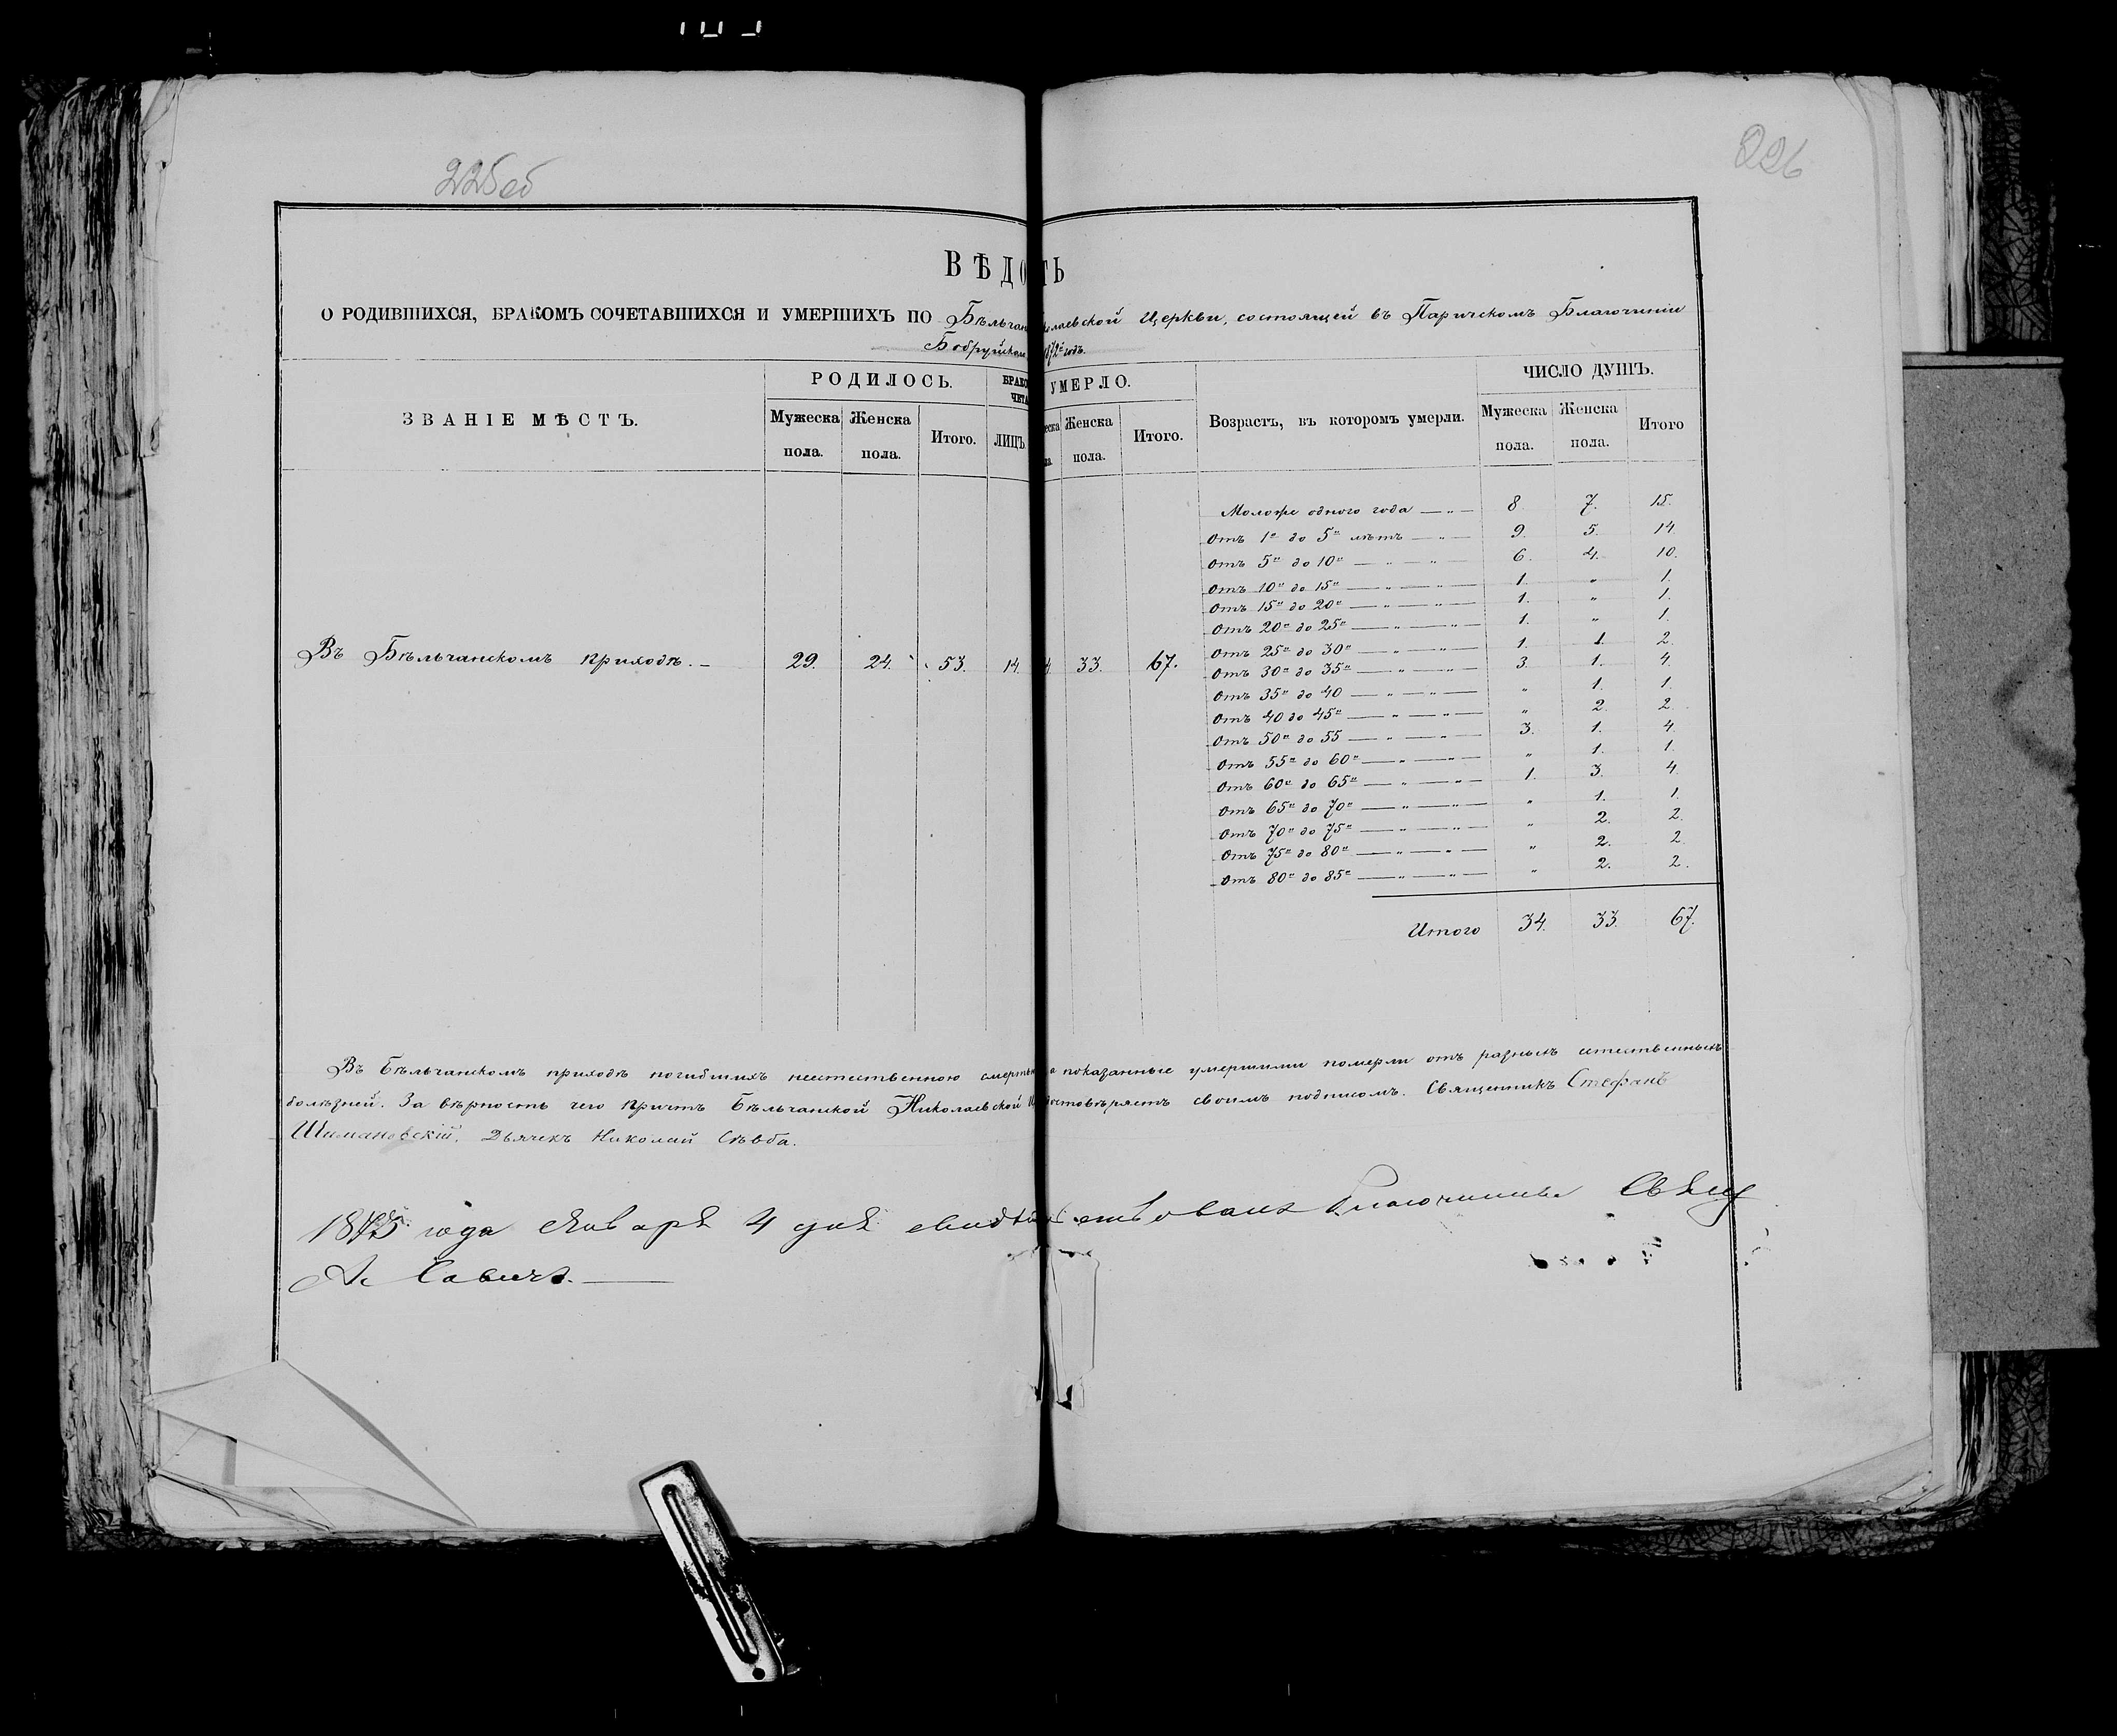 225об
226
ВѢДО ТЬ
О РОДИВШИХСЯ, БРАКОМЪ СОЧЕТАВШИХСЯ И УМЕРШИХЪ ПО Бѣльчан колаевской Церкви, состоящей въ Паричскомъ Благочинии
Бобруйском 1872й годъ.
ЗВАНІЕ МѢСТЪ.
РОДИЛОСЬ.
Мужеска пола.
Женска пола.
Итого.
БРАКО ЧЕТА
ЛИЦЪ
УМЕРЛО.
Женска пола.
Итого.
Возрастъ, въ которомъ умерли.
ЧИСЛО ДУШЪ.
Мужеска пола.
Женска пола.
Итого
Въ Бѣльчанскомъ приходѣ. — 29. 24. 53. 14. 4. 33. 67.
Моложе одного года — „ — 8. 7. 15.
Отъ 1го до 5ти лѣтъ — „ — 9. 5. 14.
Отъ 5ти до 10ти — „ — „ 6. 4. 10.
Отъ 10ти до 15ти — „ — „ — 1. „ 1.
Отъ 15ти до 20ти — „ — „ — 1. „ 1.
Отъ 20ти до 25ти — „ — „ 1. „ 1.
Отъ 25ти до 30ти — „ — „ 1. 1. 2.
Отъ 30ти до 35ти — „ — „ — 3. 1. 4.
Отъ 35ти до 40 — „ — „ — „ 1. 1.
Отъ 40 до 45ти — „ — „ — „ 2. 2.
Отъ 50ти до 55 — „ — „ 3. 1. 4.
Отъ 55ти до 60ти — „ — „ — „ 1. 1.
Отъ 60ти до 65ти — „ — „ — 1. 3. 4.
Отъ 65ти до 70ти — „ — „ — „ 1. 1.
Отъ 70ти до 75ти — „ — „ — „ 2. 2.
Отъ 75ти до 80ти — „ — „ — „ 2. 2.
Отъ 80ти до 85ти — „ — „ — „ 2. 2.
Итого 34. 33. 67.
Въ Бѣльчанскомъ приходѣ погибшихъ неестественною смерть а показанные умершими померли отъ разныхъ естественныхъ
болѣзней. За вѣрность чего Причтъ Бѣльчанской Николаевской Ц достовѣряетъ своимъ подписомъ. Священникъ Стефанъ
Шимановскій. Дьячекъ Николай Сѣвба.
года Января 4 дня свидѣтельствовалъ Благочинный Свящ
А. Савичъ.